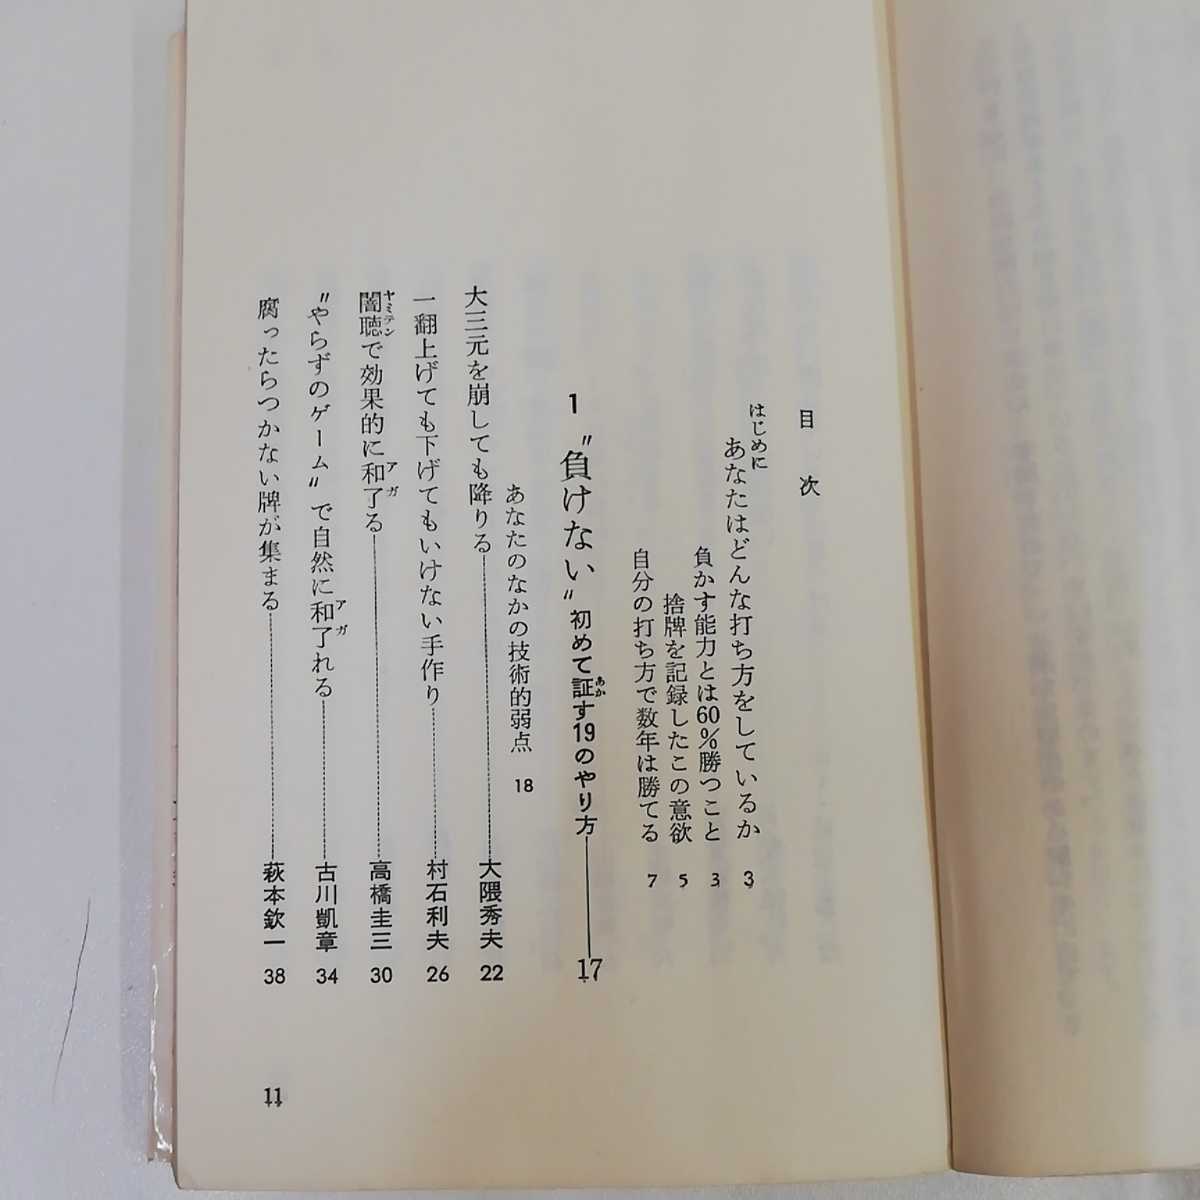 目次
はじめに あなたはどんな打ち方をしているか 3
負かす能力とは60%勝つこと 3
捨牌を記録したこの意欲 5
自分の打ち方で数年は勝てる 7
1 〝負けない〟初めて証す19のやり方 17
あか
あなたのなかの技術的弱点 18
大三元を崩しても降りる 大隈秀夫 22
一翻上げても下げてもいけない手作り 村石利夫 26
闇聴で効果的に和了る 高橋圭三 30
ヤミテン アガ
〝やらずのゲーム〟で自然に和了れる 古川凱章 34
アガ
腐ったらつかない牌が集まる 萩本欽一 38
11